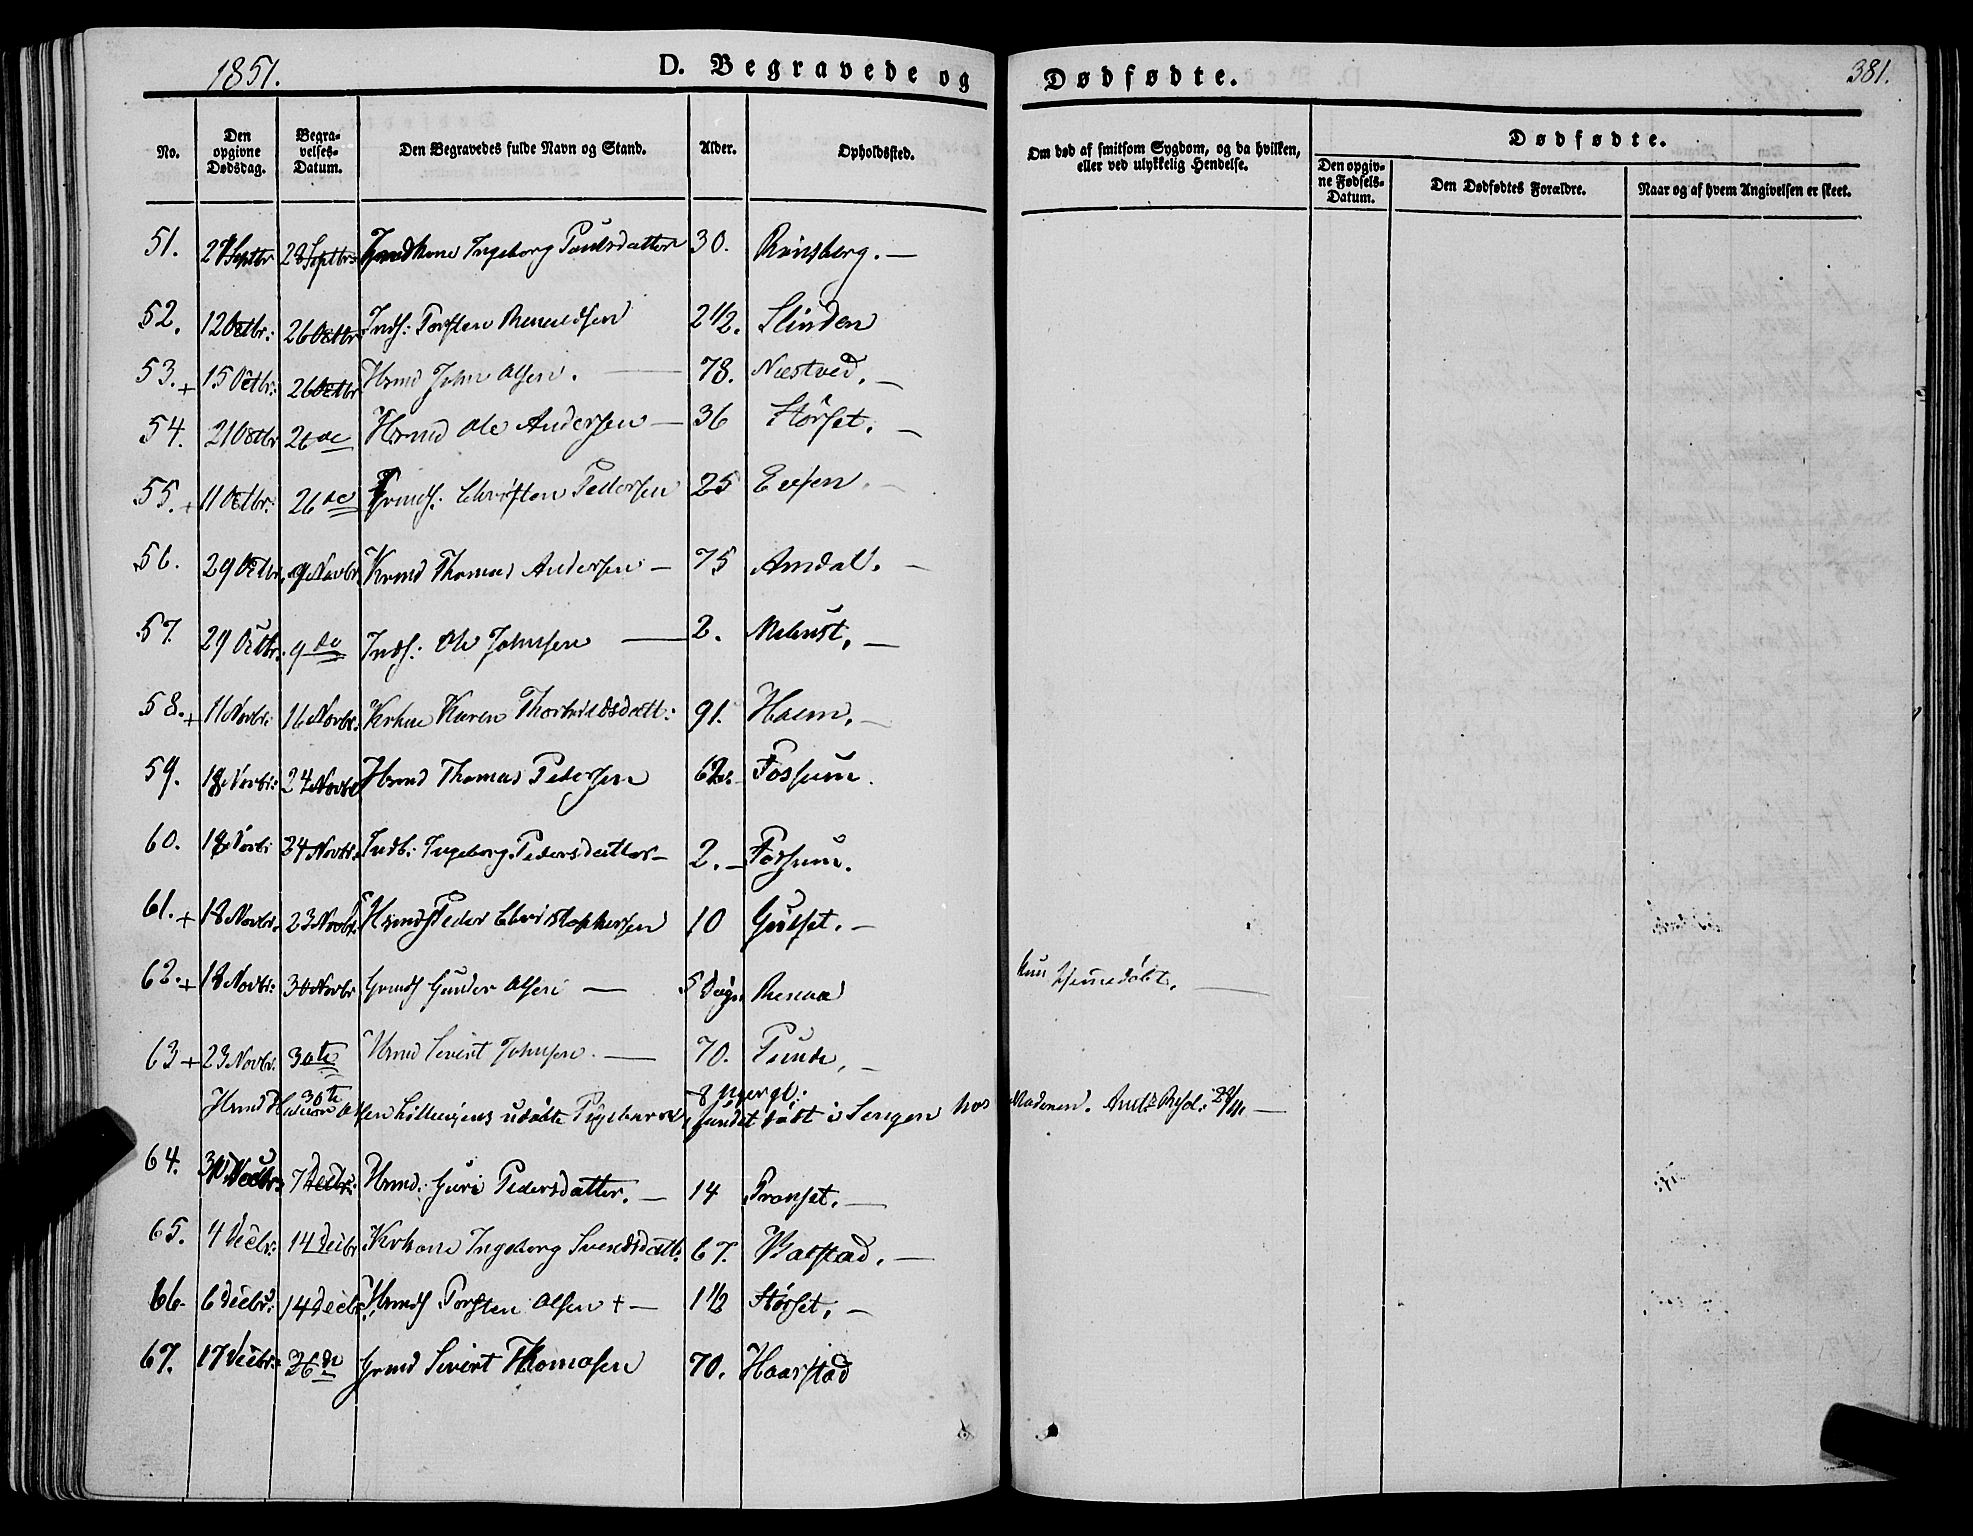 1851.
D. Begravede og Dødfødte.
381.
No.
Den opgivne Dødsdag.
Begravelses-Datum.
Den Begravedes fulde Navn og Stand.
Alder.
Opholdssted.
Om død af smitsom Sygdom, og da hvilken, eller ved ulykkelig Hendelse.
Dødfødte.
Den opgivne Fødsels-Datum.
Den Dødfødtes Forældre.
Naar og af hvem Angivelsen er skeet.
51. 21 Septbr 28 Septbr Ingeborg Paulsdatter 30. Rönsberg. —
52. 12 Octbr: 26 Octbr Inds: Torsten 2 1/2. Slinden
53. + 15 Octbr: 26 Octbr Hsmd John Olsen. — 78. Næstved. —
54. 21 Octbr 26 de Hsmd Ole Andersen — 36 Störset. —
55. + 11 Octbr: 26 de Christen Pedersen 25 Eesen. —
56. 29 Octbr. 9 Novbr. Krmd Thomas Andersen — 75 Amdal. —
57. 29 Octbr. 9 do Inds: Ole Johnsen — 2. Melhust. —
58. + 11 Novbr: 16 Novbr. Karen 91. Haem. —
59. 18 Novbr: 24 Novbr Hsmd Thomas Pedersen 62. Fossum.
60. 18 Novbr 24 Novbr. Ingeborg Pedersdatter — 2. — Fossum.
61. + 18 Novbr. 23 Novbr. Peder Christophersen 10 Gülset. —
62. + 18 Novbr: 30 Novbr Grmds Gunder Olsen — 5 Døgn Renaa kun Hjemmedöbt. —
63 + 23 Novbr. 30te Hsmd Sivert Johnsen. — 70. —
30te Hsmd Olsen udöbte Pigebarn, 8 gl: fundet dödt i Sengen hos Moderen. Amts Resol: 28/11. —
64. 7 Decbr: Hsmd: Guri Pedersdatter. — 14 Pranset. —
65. 4 Decbr: 14 Decbr Krkone Ingeborg Svendsdatt. 67. Barstad. —
66. 6 Decbr: 14 Decbr. Hsmds Torsten Olsen + — 1 1/2 Störset. —
67. 17 Decbr: 26 de Grmd Sivert Thomasen 70. Haarstad